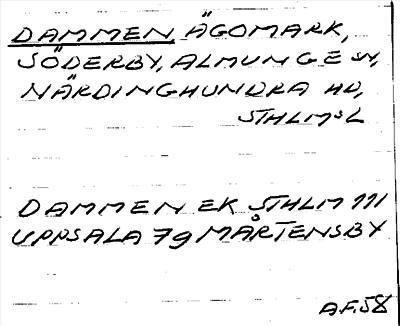 DAMMEN, ÄGOMARK,
SÖDERBY, ALMUNGE SN,
NÄRDINGHUNDRA HD,
STHLMS L
DAMMEN EK STHLM 111
UPPSALA 79 MÅRTENSBY
A.F. 58